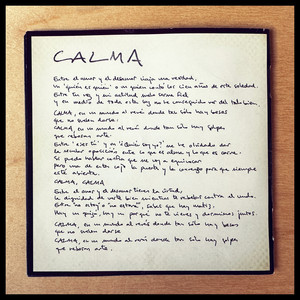 CALMA
Entre el amar y el desamar viaja una verdad,
un "quién es quién" o un quien cuenta los cien años de esta soledad.
Entre tu voz y mi actitud suele
y en medio de todo esto soy no he conseguido ver del también.
CALMA, en un mundo al revés donde tan sólo hay besos
que no suelen darse.
CALMA, en un mundo al revés donde tan sólo hay golpes
que rebosan arte.
Entre "ser tú" y un "quién soy yo" me he olvidado dar
la siempre aparición entre lo que es alma y lo que es carne.
Se puede hablar confía que me voy a equivocar
pero una de estas cojo la puerta y la convenzo para que siempre
esté abierta.
CALMA, CALMA
Entre el amar y el desamar tienes la virtud,
la dignidad de verte bien mientras te rebelas contra el mundo.
Entre "no estoy" o "no estaré", sabes que hay matiz,
hay un quizá, hay un porqué no te vienes y dormimos juntos.
CALMA, en un mundo al revés donde tan sólo hay besos
que no suelen darse
CALMA, en un mundo al revés donde tan sólo hay golpes
que rebosan arte.